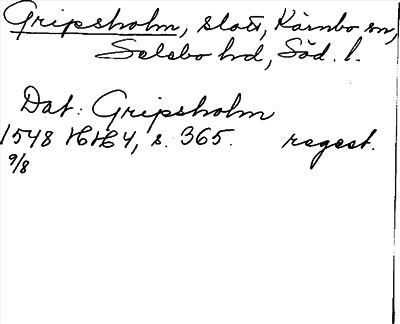 Gripsholm, slott, Kärnbo sn,
Selebo hd, Söd. l.
Dat: Gripsholm
1548 HH 4, s. 365. regest.
9/8